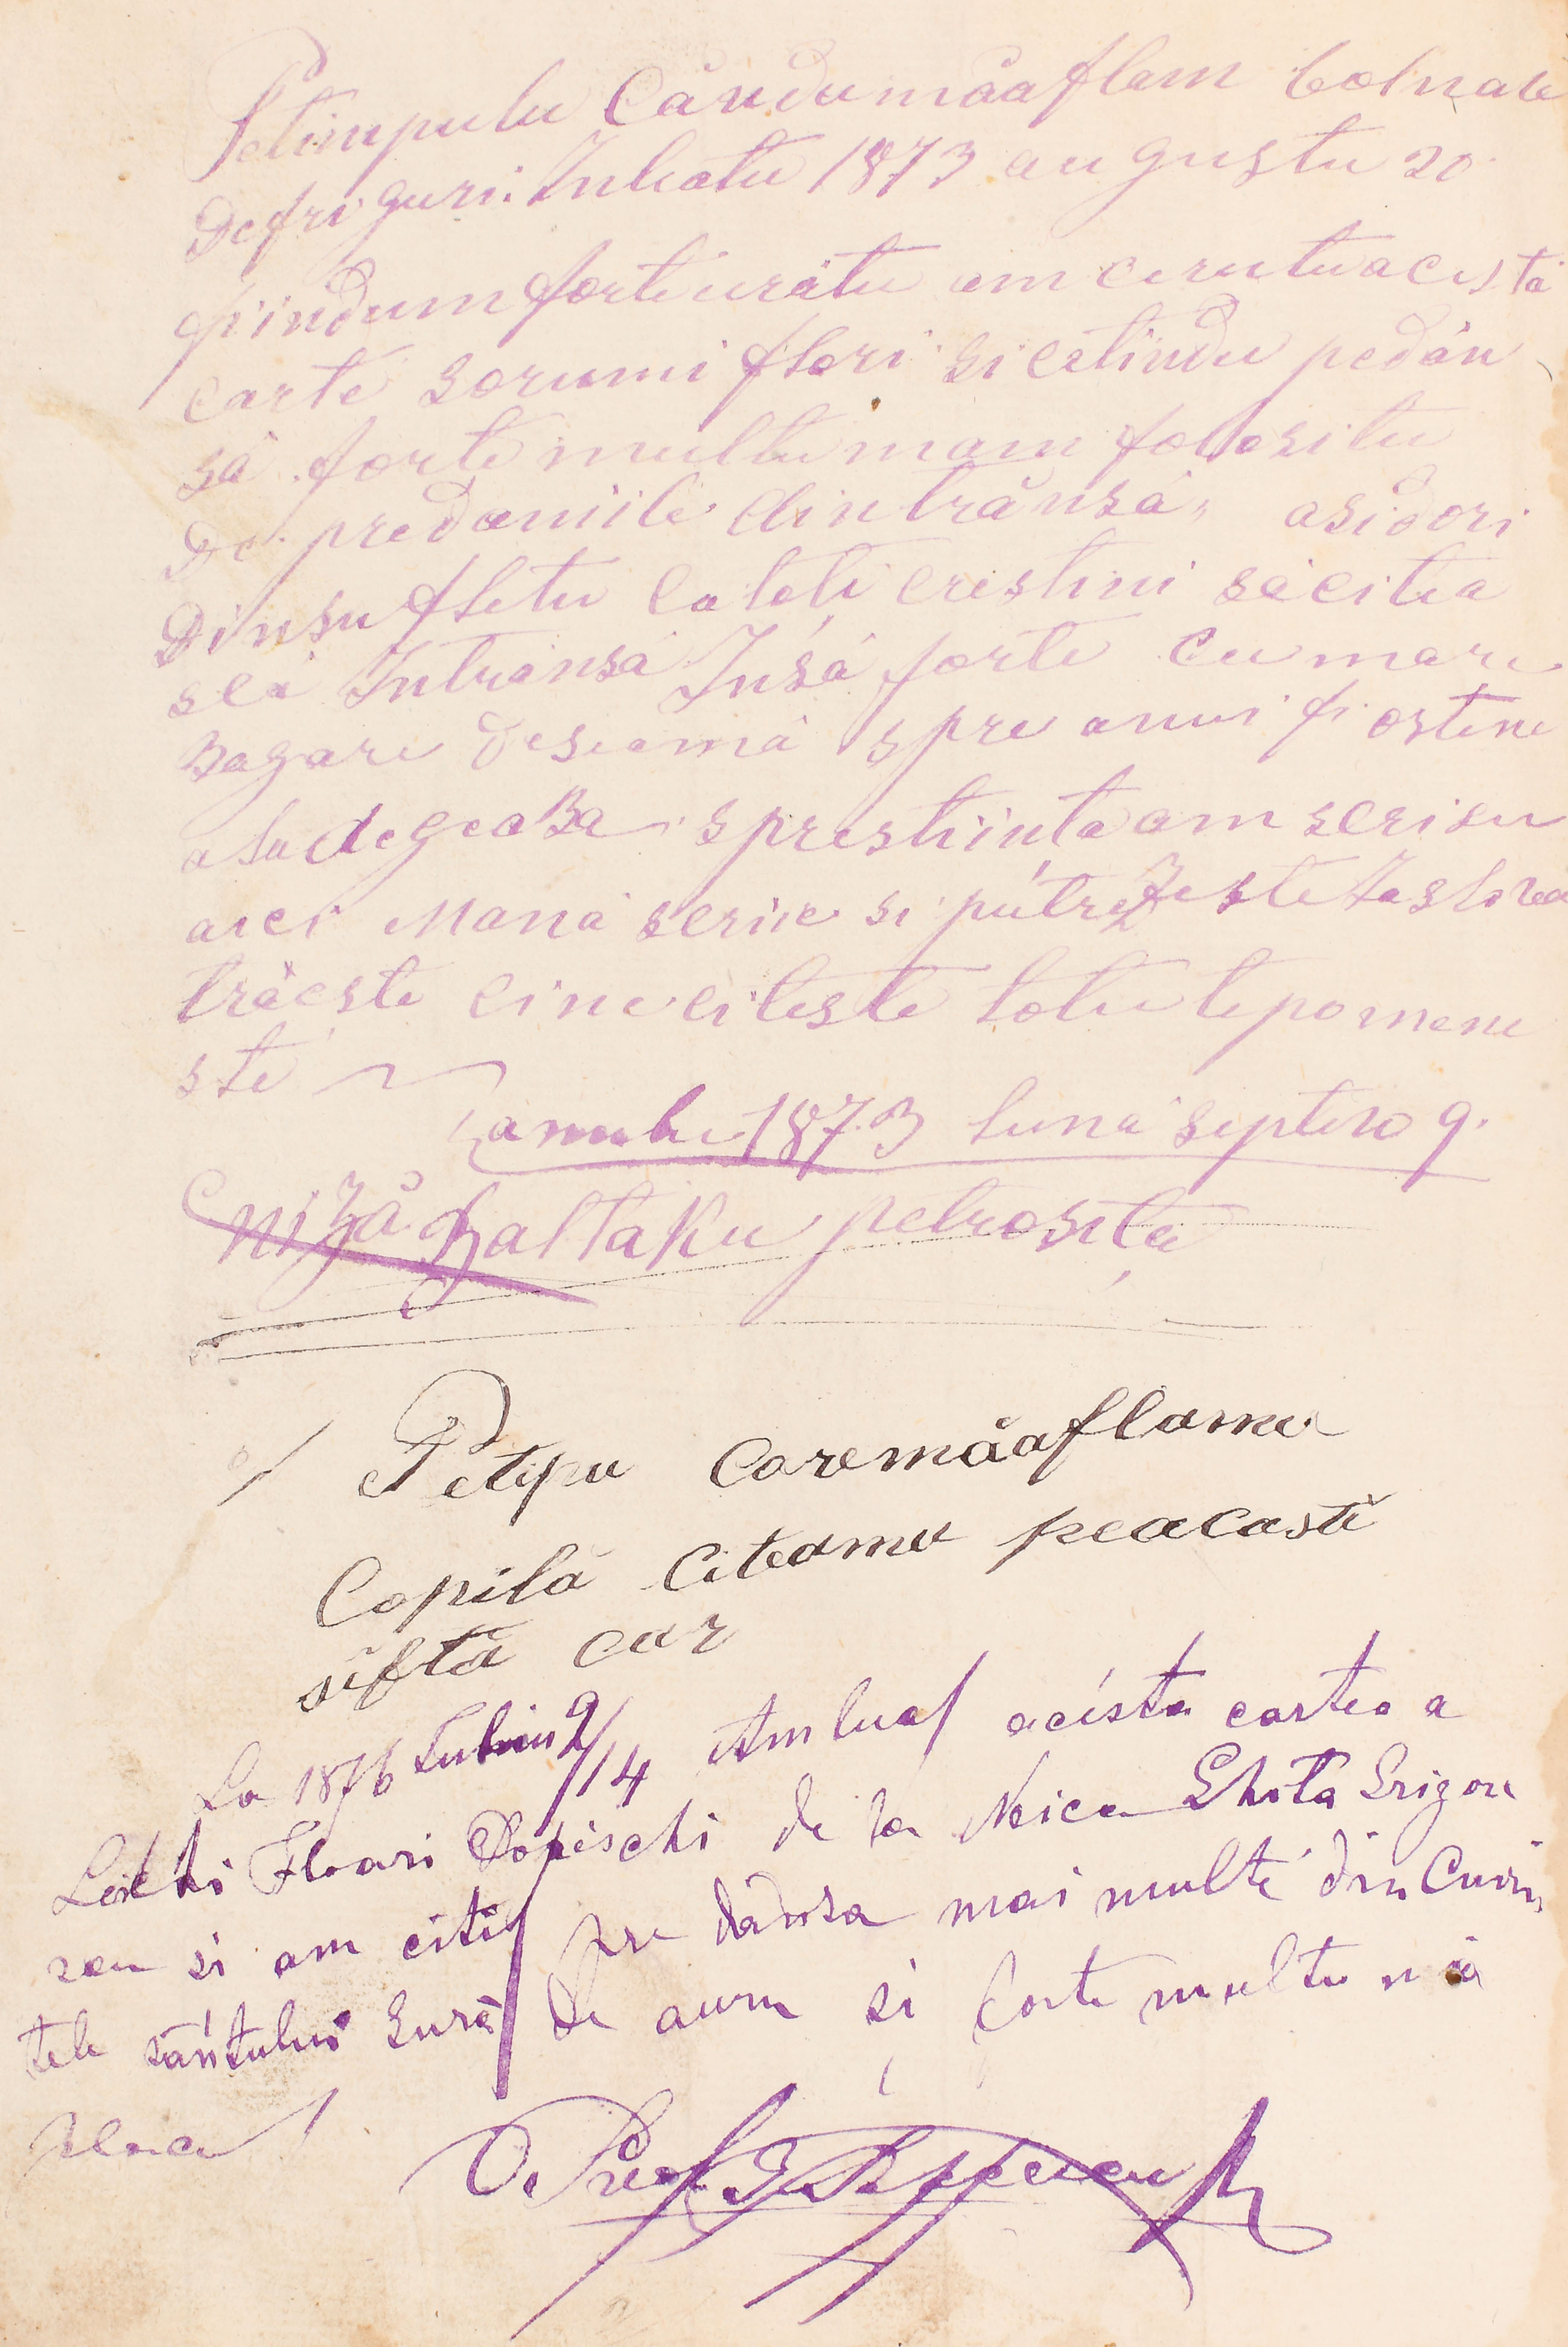 Petimpulu Cândumăaflam bolnavu
Defriguri. 1873 augustu 20
fiindum forteurâtu am cerutuacesta
carte sorumi flori si cetindu pedân
să forte multu mam folositu
De predaniile dintrânsă, asidori
Dinsufletu catoti crestini săcitea
scă Intransă Însă forte cu mare
Bagare deseamă spre anuvi fi ostene
ala degeaBa sprestiinta am scrisu
aici Mană scrie si putreZeste slova
trăeste cineciteste totu tepomene
ste
anulu 1873 luna septem 9.
niZă Baltaku petrosita
Petipu Caremăaflamu
Copilă Citeamu peacastă
siftă car
La 1876 Iuniu 2/14 Amluat acésta cartea a
Floari Popischi de la Neica Ghita Grigore
scu si am citit pre dânsa mai multe din Cuvin
tele sântului Gură de auru si forte multu mă